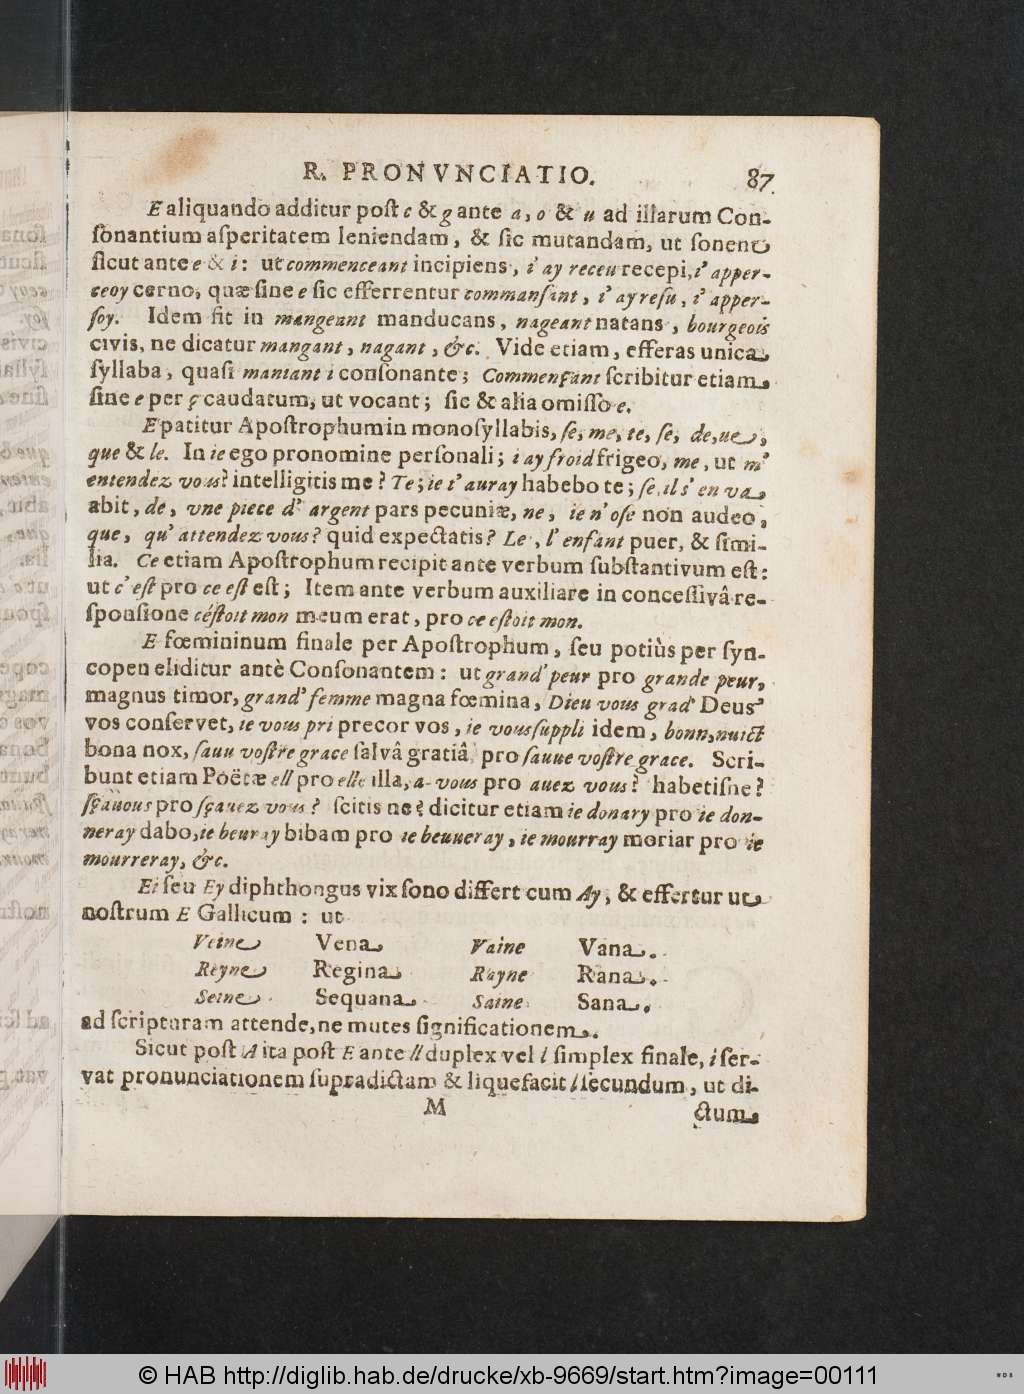 R. PRONVNCIATIO. 87.
E aliquando additur poſt c & g ante a, o & u ad illarum Con-
ſonantium aſperitatem leniendam, & ſic mutandam, ut ſonent
ſicut ante e & i: ut commenceant incipiens, i'ay receu recepi, i'apper-
ceoy cerno, quæ ſine e ſic efferrentur commanſant, i'ay reſu, i'apper-
ſoy. Idem fit in mangeant manducans, nageant natans, bourgeois
civis, ne dicatur mangant, nagant, &c. Vide etiam, efferas unica
ſyllaba, quaſi maniant i conſonante; Commençant ſcribitur etiam
ſine e per ç caudatum, ut vocant; ſic & alia omiſſo e.
E patitur Apoſtrophum in monoſyllabis, ſe, me, te, ſe, de, ne,
que & le. In ie ego pronomine perſonali; i ay froid frigeo, me, ut m'
entendez vous? intelligitis me? Te; ie t'auray habebo te; ſe, il s'en va
abit, de, vne piece d'argent pars pecuniæ, ne, ie n'oſe non audeo,
que, qu'attendez vous? quid expectatis? Le, l'enfant puer, & ſimi-
lia. Ce etiam Apoſtrophum recipit ante verbum ſubſtantivum eſt:
ut c'eſt pro ce eſt eſt; Item ante verbum auxiliare in conceſſivâ re-
ſponſione céſtoit mon meum erat, pro ce eſtoit mon.
E fœmininum finale per Apoſtrophum, ſeu potiùs per ſyn-
copen eliditur antè Conſonantem: ut grand'peur pro grande peur,
magnus timor, grand'femme magna fœmina, Dieu vous grad' Deus
vos conſervet, ie vous pri precor vos, ie vous ſuppli idem, bonn, nuict
bona nox, ſauu voſtre grace ſalvâ gratiâ, pro ſauue voſtre grace. Scri-
bunt etiam Poëtæ ell pro elle illa, a-vous pro auez vous? habetiſne?
ſçauous pro ſçauez vous? ſcitis ne? dicitur etiam ie donary pro ie don-
neray dabo, ie beuray bibam pro ie beuueray, ie mourray moriar pro ie
mourreray, &c.
Ei ſeu Ey diphthongus vix ſono differt cum Ay, & effertur ut
noſtrum E Gallicum: ut
Veine Vena Vaine Vana.
Reyne Regina Rayne Rana.
Seine Sequana Saine Sana.
ad ſcripturam attende, ne mutes ſignificationem.
Sicut poſt A ita poſt E ante ll duplex vel l ſimplex finale, i ſer-
vat pronunciationem ſupradictam & liquefacit l ſecundum, ut di-
M ctum
© HAB http://diglib.hab.de/drucke/xb-9669/start.htm?image=00111